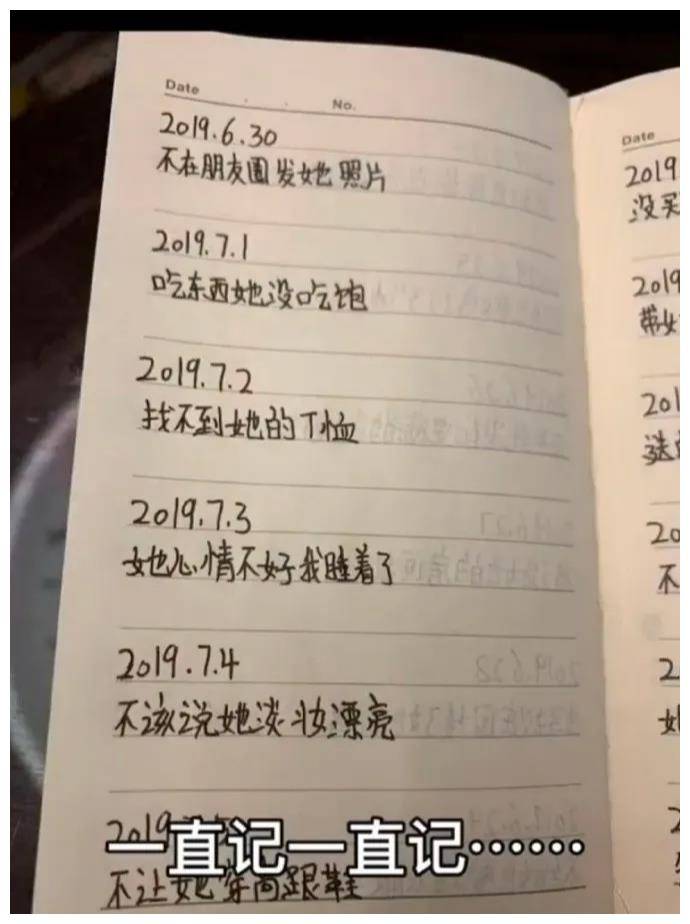 Date
No.
2019.6.30
不在朋友圈发她照片
2019.7.1
吃东西她没吃饱
2019.7.2
找不到她的T恤
2019.7.3
她心情不好我睡着了
2019.7.4
不该说她淡妆漂亮
2019
不让她穿高跟鞋
一直记一直记……
Date
2019
没买
2019
带她
201
送
20
不
2
她
2